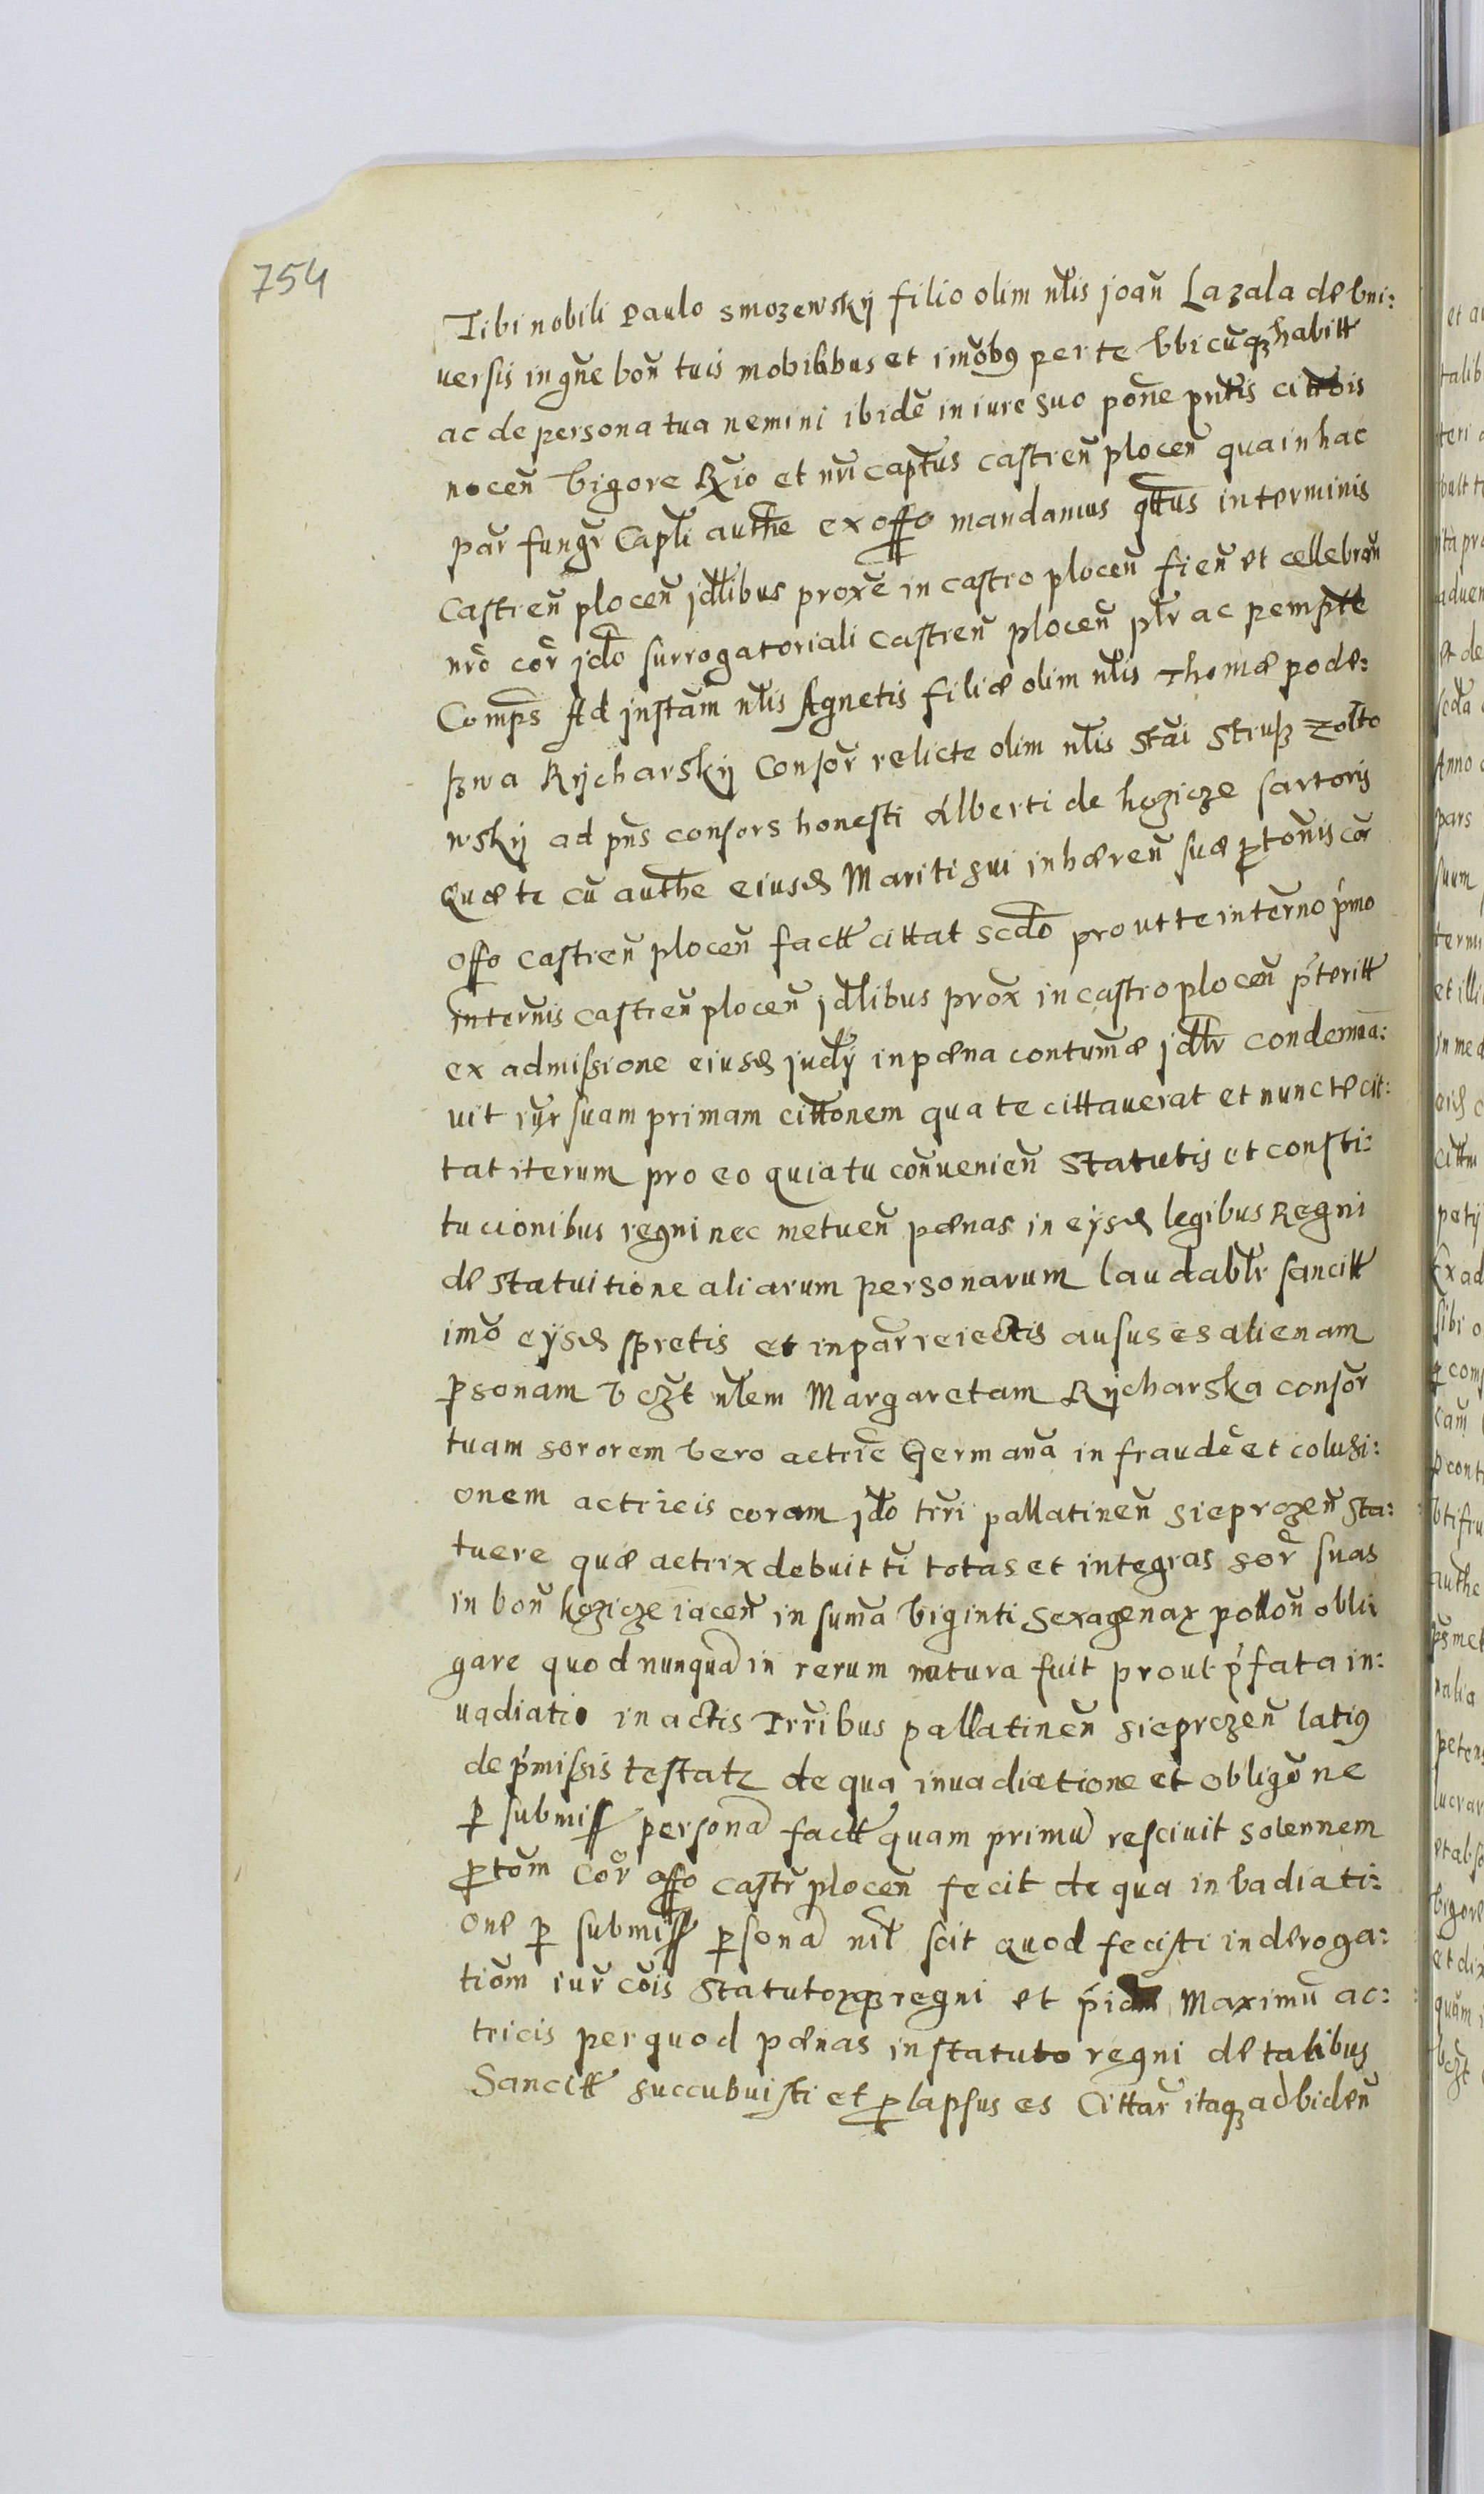 754
Tibi nobili Paulo Smozewskij filio olim nłis Joan̄ Lazala de vni:
uersis in gn̄e bon̄ tuis mobilibus et im̄obꝰ per te vbicūqꝫ habitt
ac de persona tua nemini ibidē in iure suo pon̄e pn̄tis cittōis
nocen̄ Vigore Rḡio et nr̄i captus castren̄ plocen̄ qua in hac
par̄ fungr̄ Capłi authē ex offo mandamus qttus in terminis
Castren̄ plocen̄ jdłibus proxē in castro plocen̄ fien̄ et cellebran̄
nrō cor̄ jdō surrogatoriali castren̄ plocen̄ płr ac pempte
Comprs̄ Ad jnstām nłis Agnetis filiæ olim nłis Thomæ pode:
ßwa Rÿcharskij Consor̄ relicte olim nłis Stāi Struß Zołto
wskij ad pn̄s consors honesti Alberti de hęzicze sartoris
Quæ te cū authē eiusd Mariti sui inhæren̄ suæ ꝓtōnis cor̄
offo castren̄ plocen̄ factt cittat scdō prout te in tern̄o p̄mo
in tern̄is castren̄ plocen̄ jdłibus prox̄ in castro plocen̄ p̄teritt
ex admissione eiusd judÿ in pæna contum̄æ jdłr condemna:
uit iux̄ suam primam cittōnem qua te cittauerat et nunc te cit:
tat iterum pro eo quia tu con̄uenien̄ statutis et consti:
tucionibus regni nec metuen̄ pænas in eÿsd legibus Regni
de statuitione aliarum personarum laudabłr sancitt
im̄o eÿsd spretis et in par̄ reiectis ausus es alienam
ꝑsonam vczt nłem Margaretam Rÿcharska consor̄
tuam sororem vero actric̄ Germanā in fraudē et colusi:
onem actricis coram jdō trr̄i pallatinen̄ sieprczen̄ sta:
tuere quæ actrix debuit ti totas et integras sor̄ suas
in bon̄ hęzicze iacen̄ in sum̄a viginti sexagenaꝝ pollon̄ obli
gare quod nunquā in rerum natura fuit prout p̄fata in:
uadiatio in actis Trr̄ibus pallatinen̄ sieprczen̄ latiꝰ
de p̄missis testatꝛ de qua inuadiatione et obligōne
ꝑ submiss personā factt quam primū resciuit solennem
ꝓtōm Cor̄ offo castr̄ plocen̄ fecit de qua inuadiati:
one ꝑ submiss ꝑsonā nił scit quod fecisti in deroga:
tiōm iur̄ cōis statutoꝝqꝫ regni et p̄iām Maximū ac:
tricis per quod pænas in statuto regni de talibus
Sancitt succubuisti et ꝓlapsus es Cittar̄ itaqꝫ ad viden̄